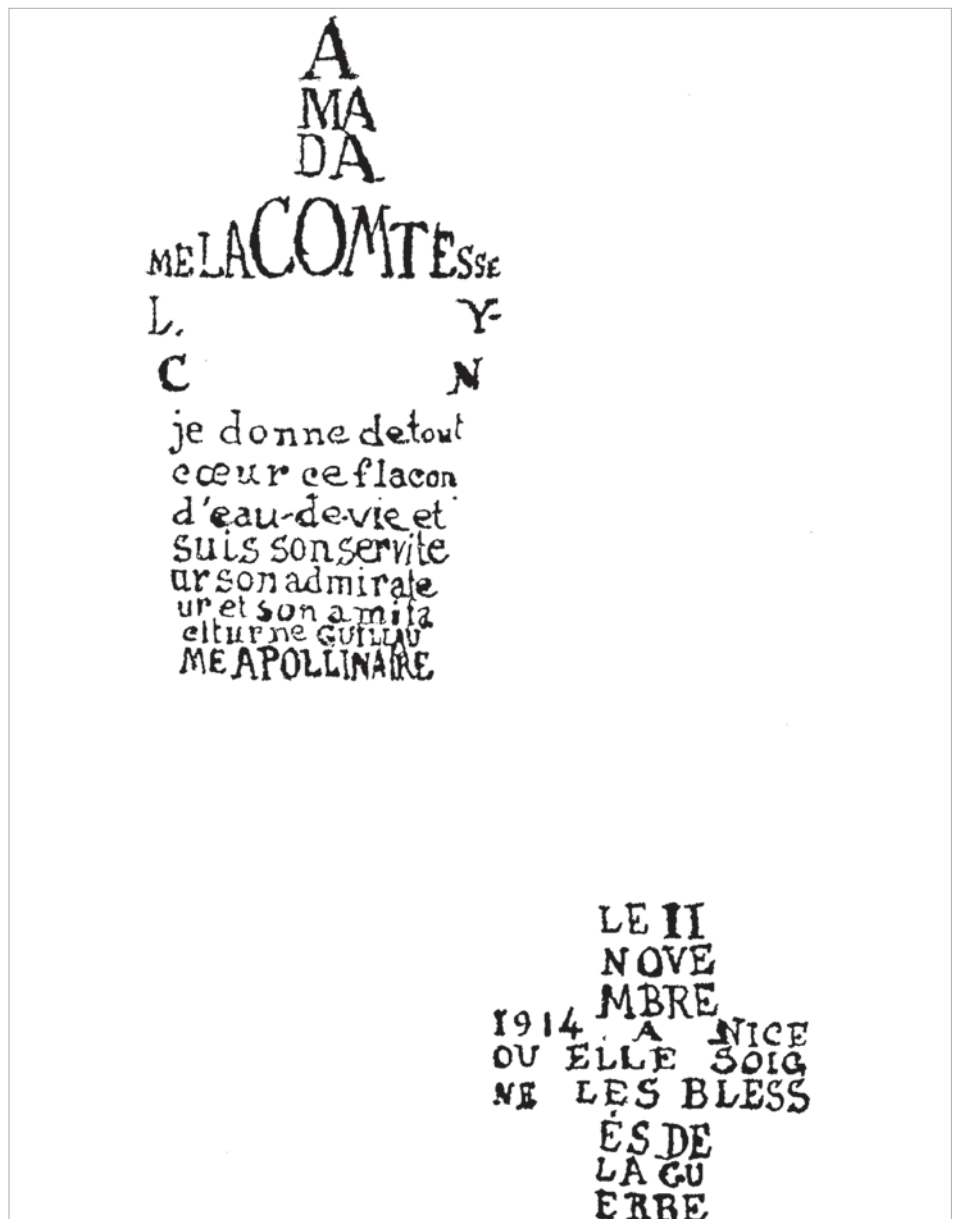 A
MA
DA
ME LA COMTESSE
L. Y-
C N
je donne de tout
cœur ce flacon
d'eau-de-vie et
suis son servite
ur son admirate
ur et son ami ta
citurne GUILLAU
ME APOLLINAIRE
LE II
NOVE
MBRE
1914 A NICE
OU ELLE SOIG
NE LES BLESS
ÉS DE
LA GU
ERRE